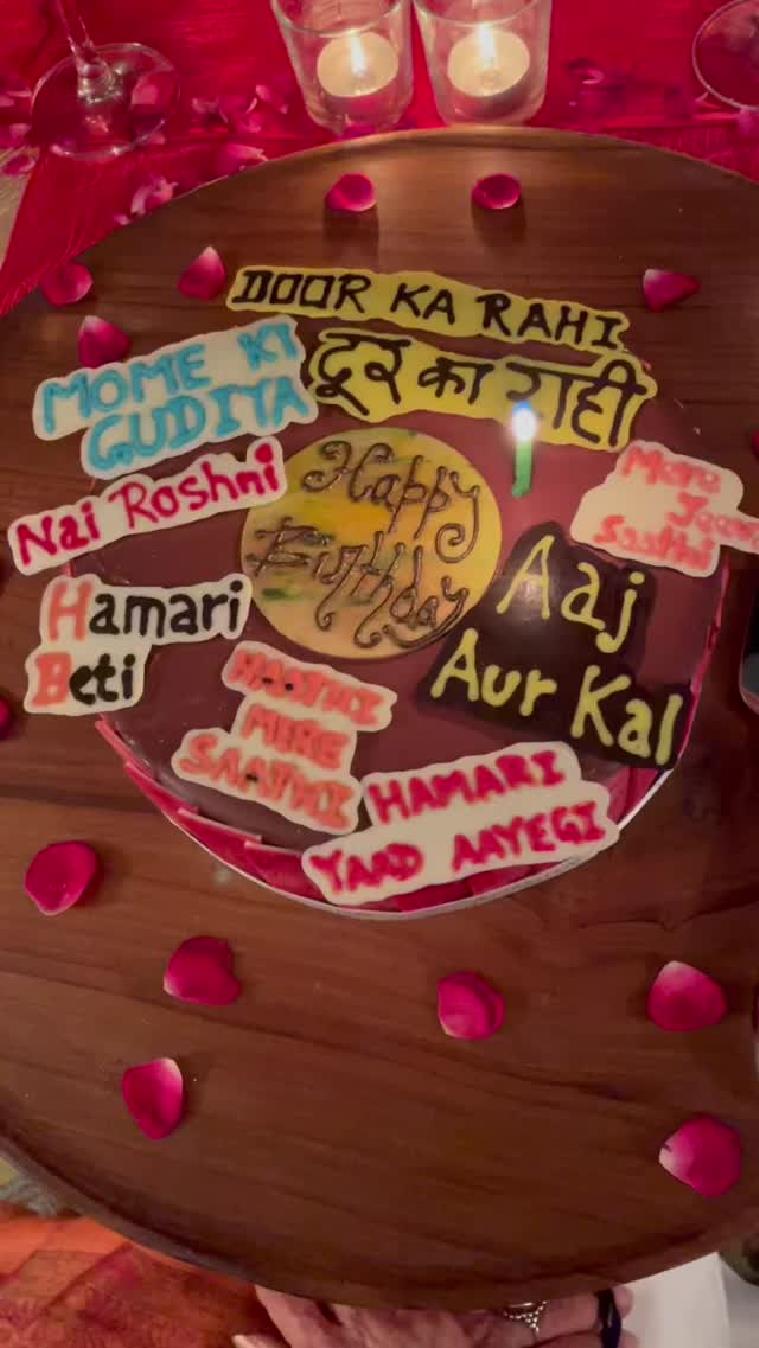 DOOR KA RAHI
दूर का राही
MOME KI
GUDIYA
Nai Roshni
Happy
Birthday
Mere
Saathi
Aaj
Aur Kal
Hamari
Beti
HAATHI
MERE
SAATHI
HAMARI
YAAD AAYEGI